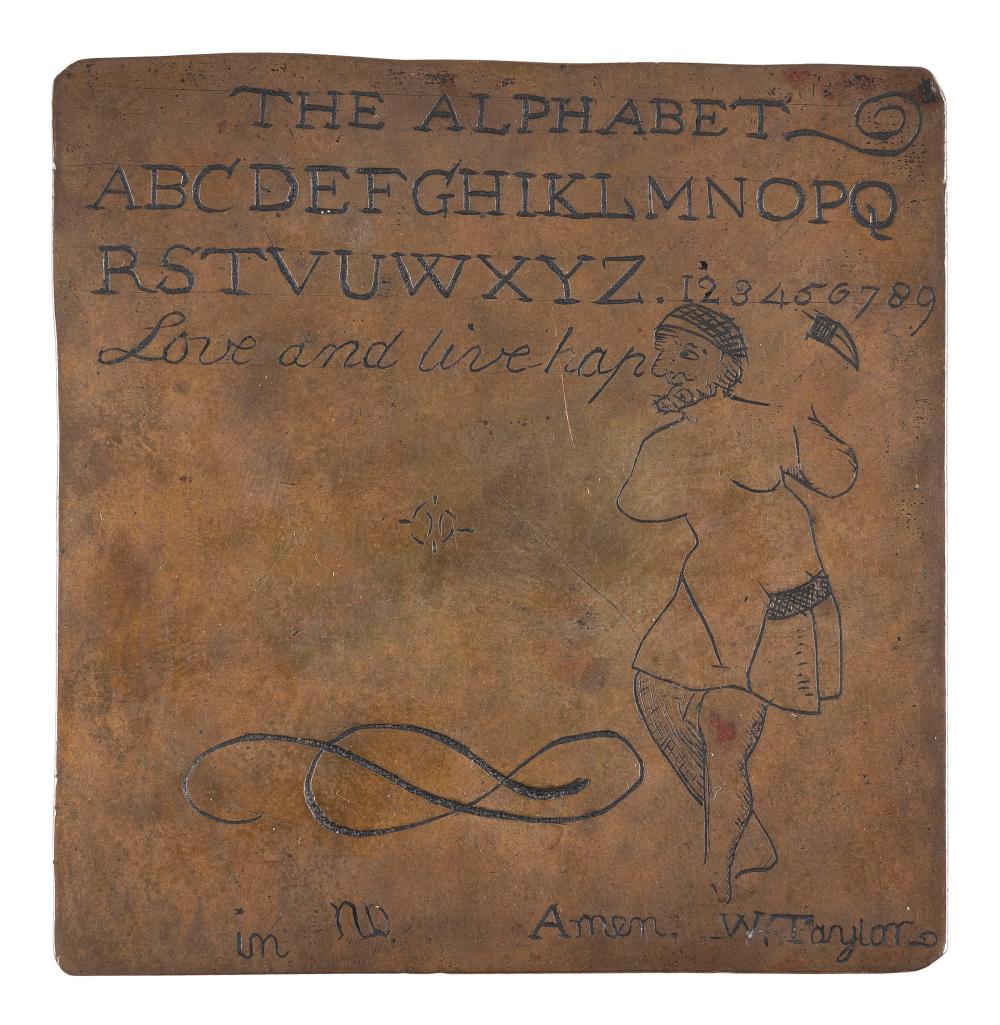 THE ALPHABET
ABCDEFGHIKLMNOPQ
RSTVUWXYZ. 123456789
Love and live hap
in ND. Amen. W. Taylor